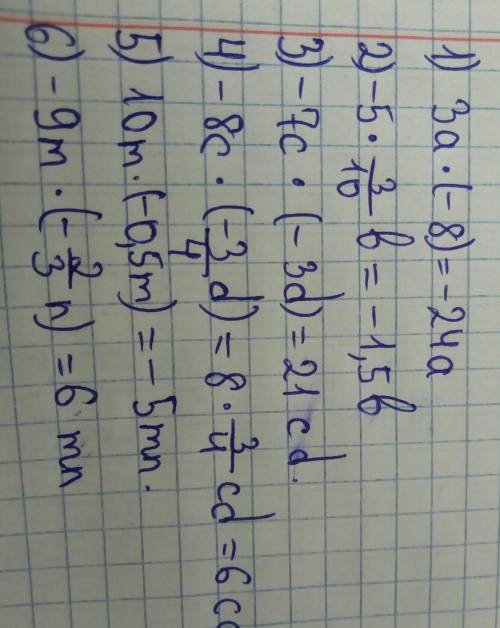 1) 3a · (-8) = -24a
2) -5 · 3/10 b = -1,5b
3) -7c · (-3d) = 21cd.
4) -8c · (-3/4 d) = 8 · 3/4 cd = 6cd
5) 10n · (-0,5m) = -5mn.
6) -9m · (-2/3 n) = 6mn